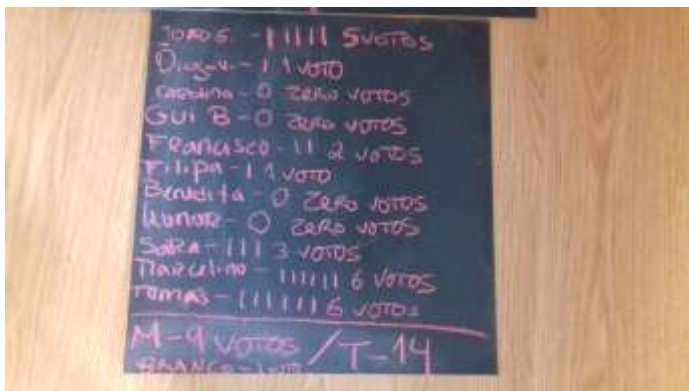 JOÃO S. - IIIII 5 VOTOS
Diogo V. - I 1 VOTO
Carolina - 0 ZERO VOTOS
GUI B - 0 ZERO VOTOS
FRANCISCO - II 2 VOTOS
Filipa - I 1 VOTO
Benedita - 0 ZERO VOTOS
Leonor - 0 ZERO VOTOS
SARA - III 3 VOTOS
Marcelino - IIIIII 6 VOTOS
TOMÁS - IIIIII 6 VOTOS
M - 9 VOTOS / T - 14
BRANCO - 1 VOTO